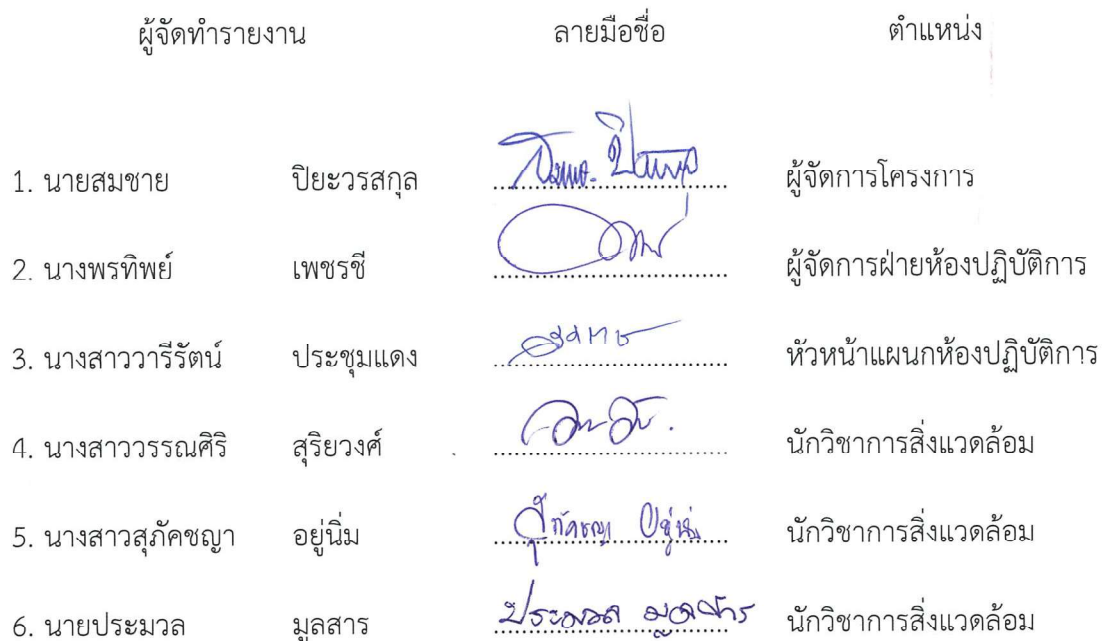 ผู้จัดทำรายงาน ลายมือชื่อ ตำแหน่ง
1. นายสมชาย ปิยะวรสกุล ผู้จัดการโครงการ
2. นางพรทิพย์ เพชรชี ผู้จัดการฝ่ายห้องปฏิบัติการ
3. นางสาววารีรัตน์ ประชุมแดง หัวหน้าแผนกห้องปฏิบัติการ
4. นางสาววรรณศิริ สุริยวงศ์ นักวิชาการสิ่งแวดล้อม
5. นางสาวสุภัคชญา อยู่นิ่ม สุภัคชญา อยู่นิ่ม นักวิชาการสิ่งแวดล้อม
6. นายประมวล มูลสาร ประมวล มูลสาร นักวิชาการสิ่งแวดล้อม